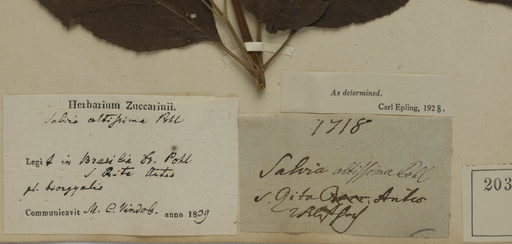 Herbarium Zuccarinii.
Salvia altissima Pohl
Legit in Brasilia Dr. Pohl
S. Rita
Communicavit M. C. Vindob. anno 1839
As determined.
Carl Epling, 1928.
1718
Salvia altissima Pohl
S. Rita
203